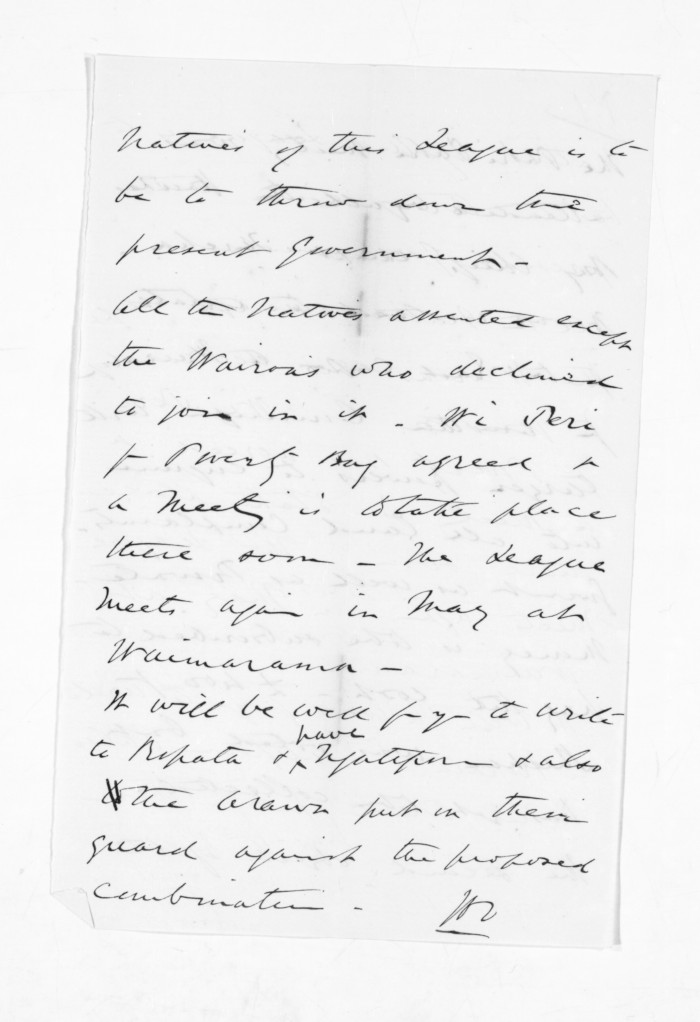 Natives of this League is to
be to throw down the
present Government -
All the Natives assented except
the Wairoas who declined
to join in it - Wi Peri
fr Poverty Bay agreed &
a Meetg is to take place
there soon - The League
meets again in May at
Waimarama -
It will be well for you to write
to Ropata & have Ngatiporou & also
the Arawa put on their
guard against the proposed
combination -